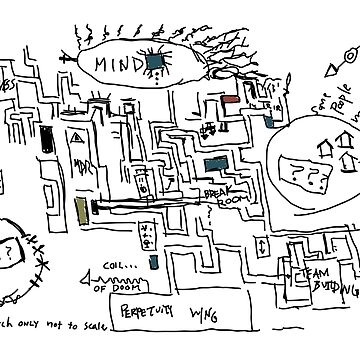 MIND
MDR
BREAK
ROOM
? ?
COIL...
OF DOOM
TEAM
BUILDING
PERPETUITY WING
ch only not to scale